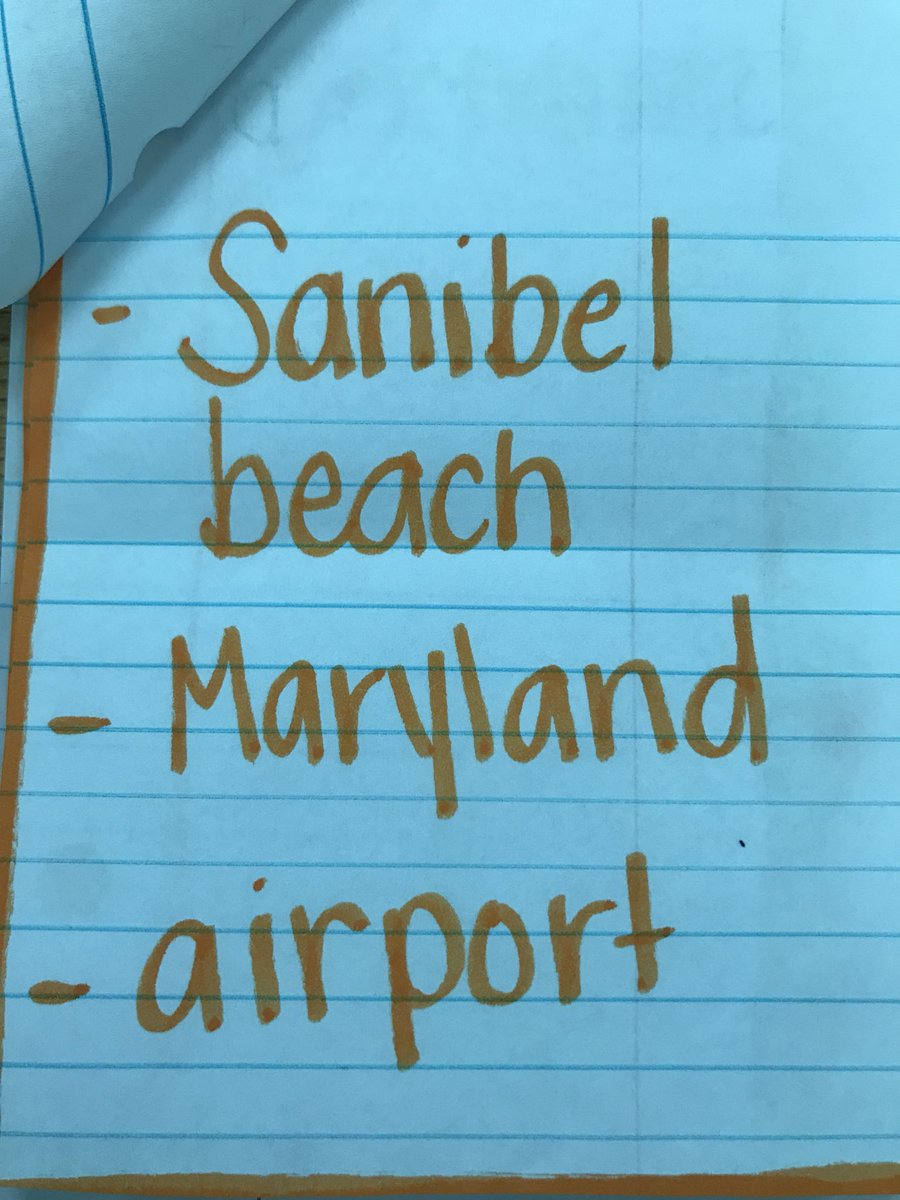 - Sanibel
beach
- Maryland
- airport